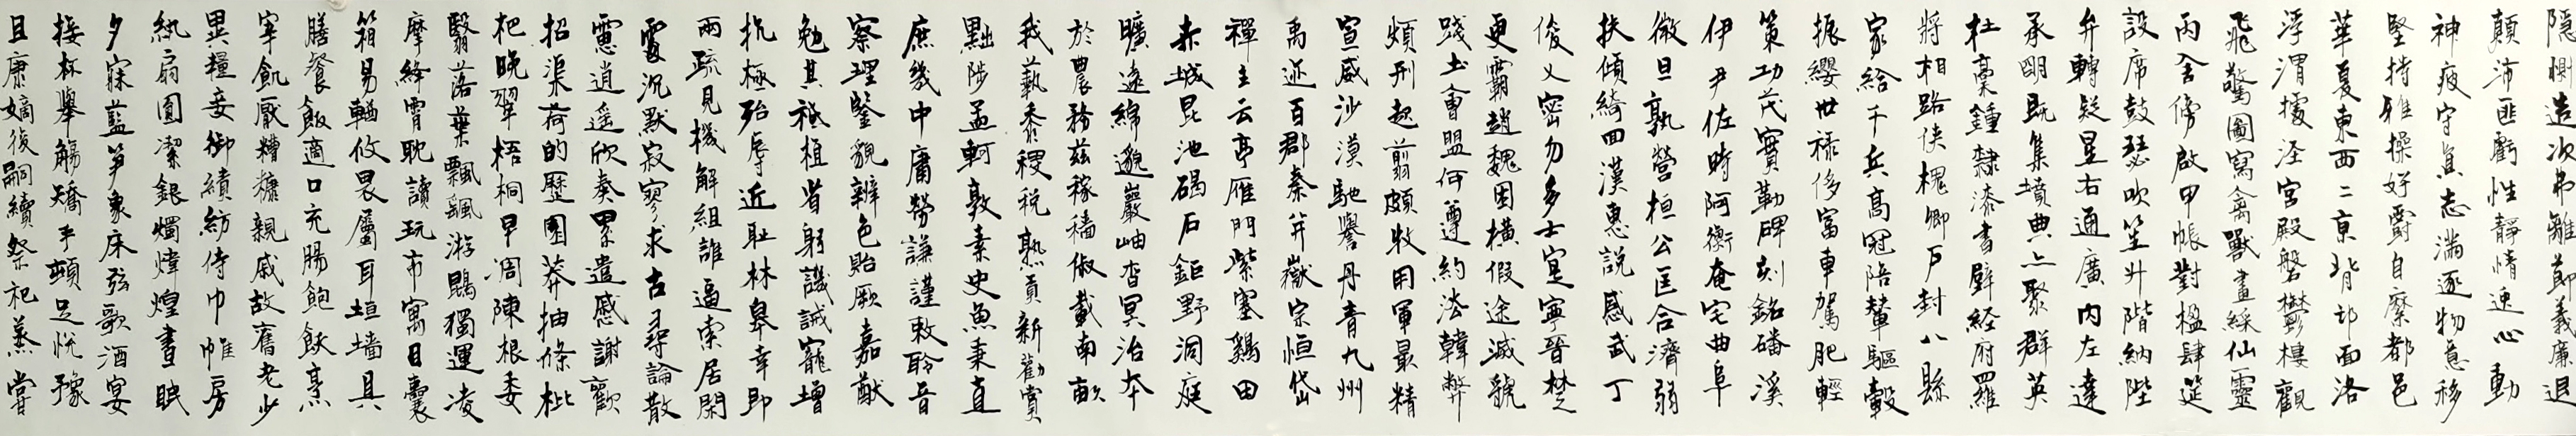 隱惻造次弗離節義廉退
顛沛匪虧性靜情逸心動
神疲守真志滿逐物意移
堅持雅操好爵自縻都邑
華夏東西二京背邙面洛
浮渭據涇宮殿磐鬱樓觀
飛驚圖寫禽獸畫綵仙靈
丙舍傍啟甲帳對楹肆筵
設席鼓瑟吹笙升階納陛
弁轉疑星右通廣內左達
承明既集墳典亦聚群英
杜稾鍾隸漆書壁經府羅
將相路俠槐卿戶封八縣
家給千兵高冠陪輦驅轂
振纓世祿侈富車駕肥輕
策功茂實勒碑刻銘磻溪
伊尹佐時阿衡奄宅曲阜
微旦孰營桓公匡合濟弱
扶傾綺回漢惠說感武丁
俊乂密勿多士寔寧晉楚
更霸趙魏困橫假途滅虢
踐土會盟何遵約法韓弊
煩刑起翦頗牧用軍最精
宣威沙漠馳譽丹青九州
禹迹百郡秦并嶽宗恒岱
禪主云亭雁門紫塞鷄田
赤城昆池碣石鉅野洞庭
曠遠綿邈巖岫杳冥治本
於農務茲稼穡俶載南畝
我藝黍稷稅熟貢新勸賞
黜陟孟軻敦素史魚秉直
庶幾中庸勞謙謹敕聆音
察理鑒貌辨色貽厥嘉猷
勉其祗植省躬譏誡寵增
抗極殆辱近恥林皋幸即
兩疏見機解組誰逼索居閑
處沉默寂寥求古尋論散
慮逍遙欣奏累遣慼謝歡
招渠荷的歷園莽抽條枇
杷晚翠梧桐早凋陳根委
翳落葉飄颻游鵾獨運凌
摩絳霄耽讀玩市寓目囊
箱易輶攸畏屬耳垣墙具
膳餐飯適口充腸飽飫烹
宰飢厭糟糠親戚故舊老少
異糧妾御績紡侍巾帷房
紈扇圓潔銀燭煒煌晝眠
夕寐藍笋象床弦歌酒宴
接杯舉觴矯手頓足悅豫
且康嫡後嗣續祭祀蒸嘗